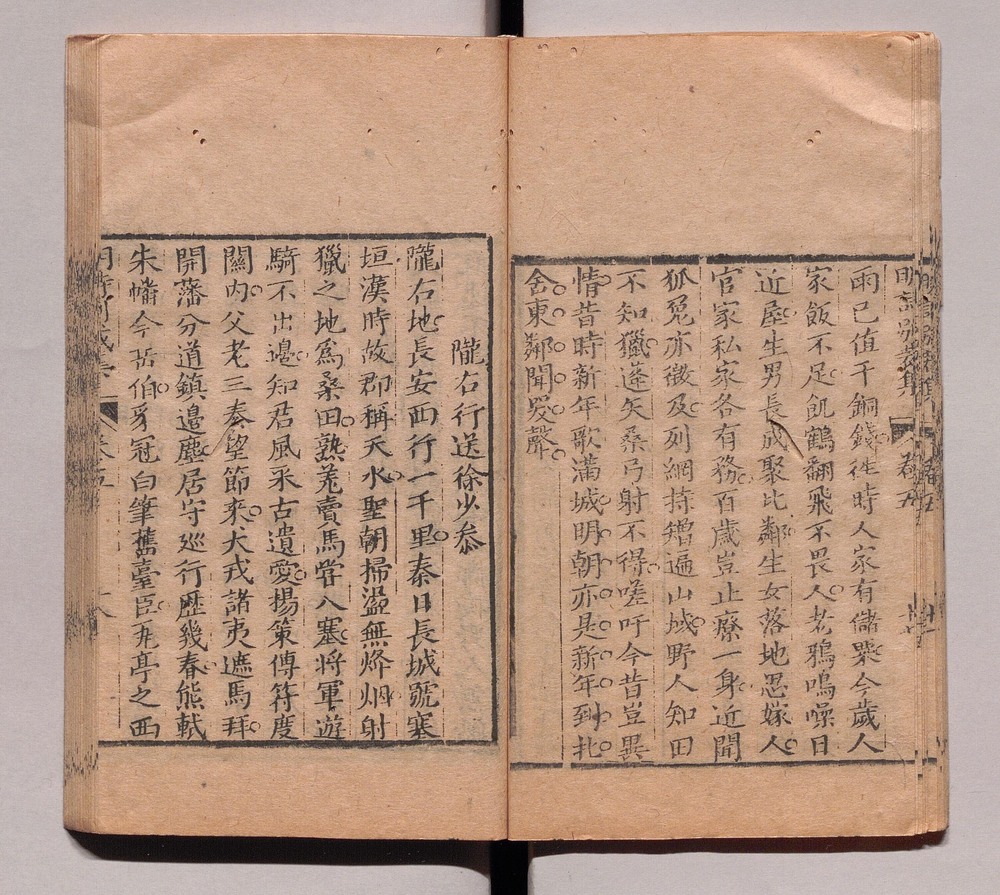 明詩別裁集 卷五
雨已值千銅錢往時人家有儲粟今歲人
家飯不足飢鶴翻飛不畏人老鴉鳴噪日
近屋生男長成聚比鄰生女落地思嫁人
官家私家各有務百歲豈止療一身近聞
狐兔亦徵及列網持矰遍山域野人知田
不知獵蓬矢桑弓射不得嗟吁今昔豈異
情昔時新年歌滿城明朝亦是新年到北
舍東鄰聞哭聲
隴右行送徐少參
隴右地長安西行一千里秦日長城號塞
垣漢時故郡稱天水聖朝掃盪無烽烟射
獵之地爲桑田熟羌賣馬常入塞將軍遊
騎不出邊知君風采古遺愛揚策傳符度
關內父老三秦望節來犬戎諸夷遮馬拜
開藩分道鎮邊塵居守巡行歷幾春熊軾
朱幡今岳伯豸冠白筆舊臺臣皐亭之西